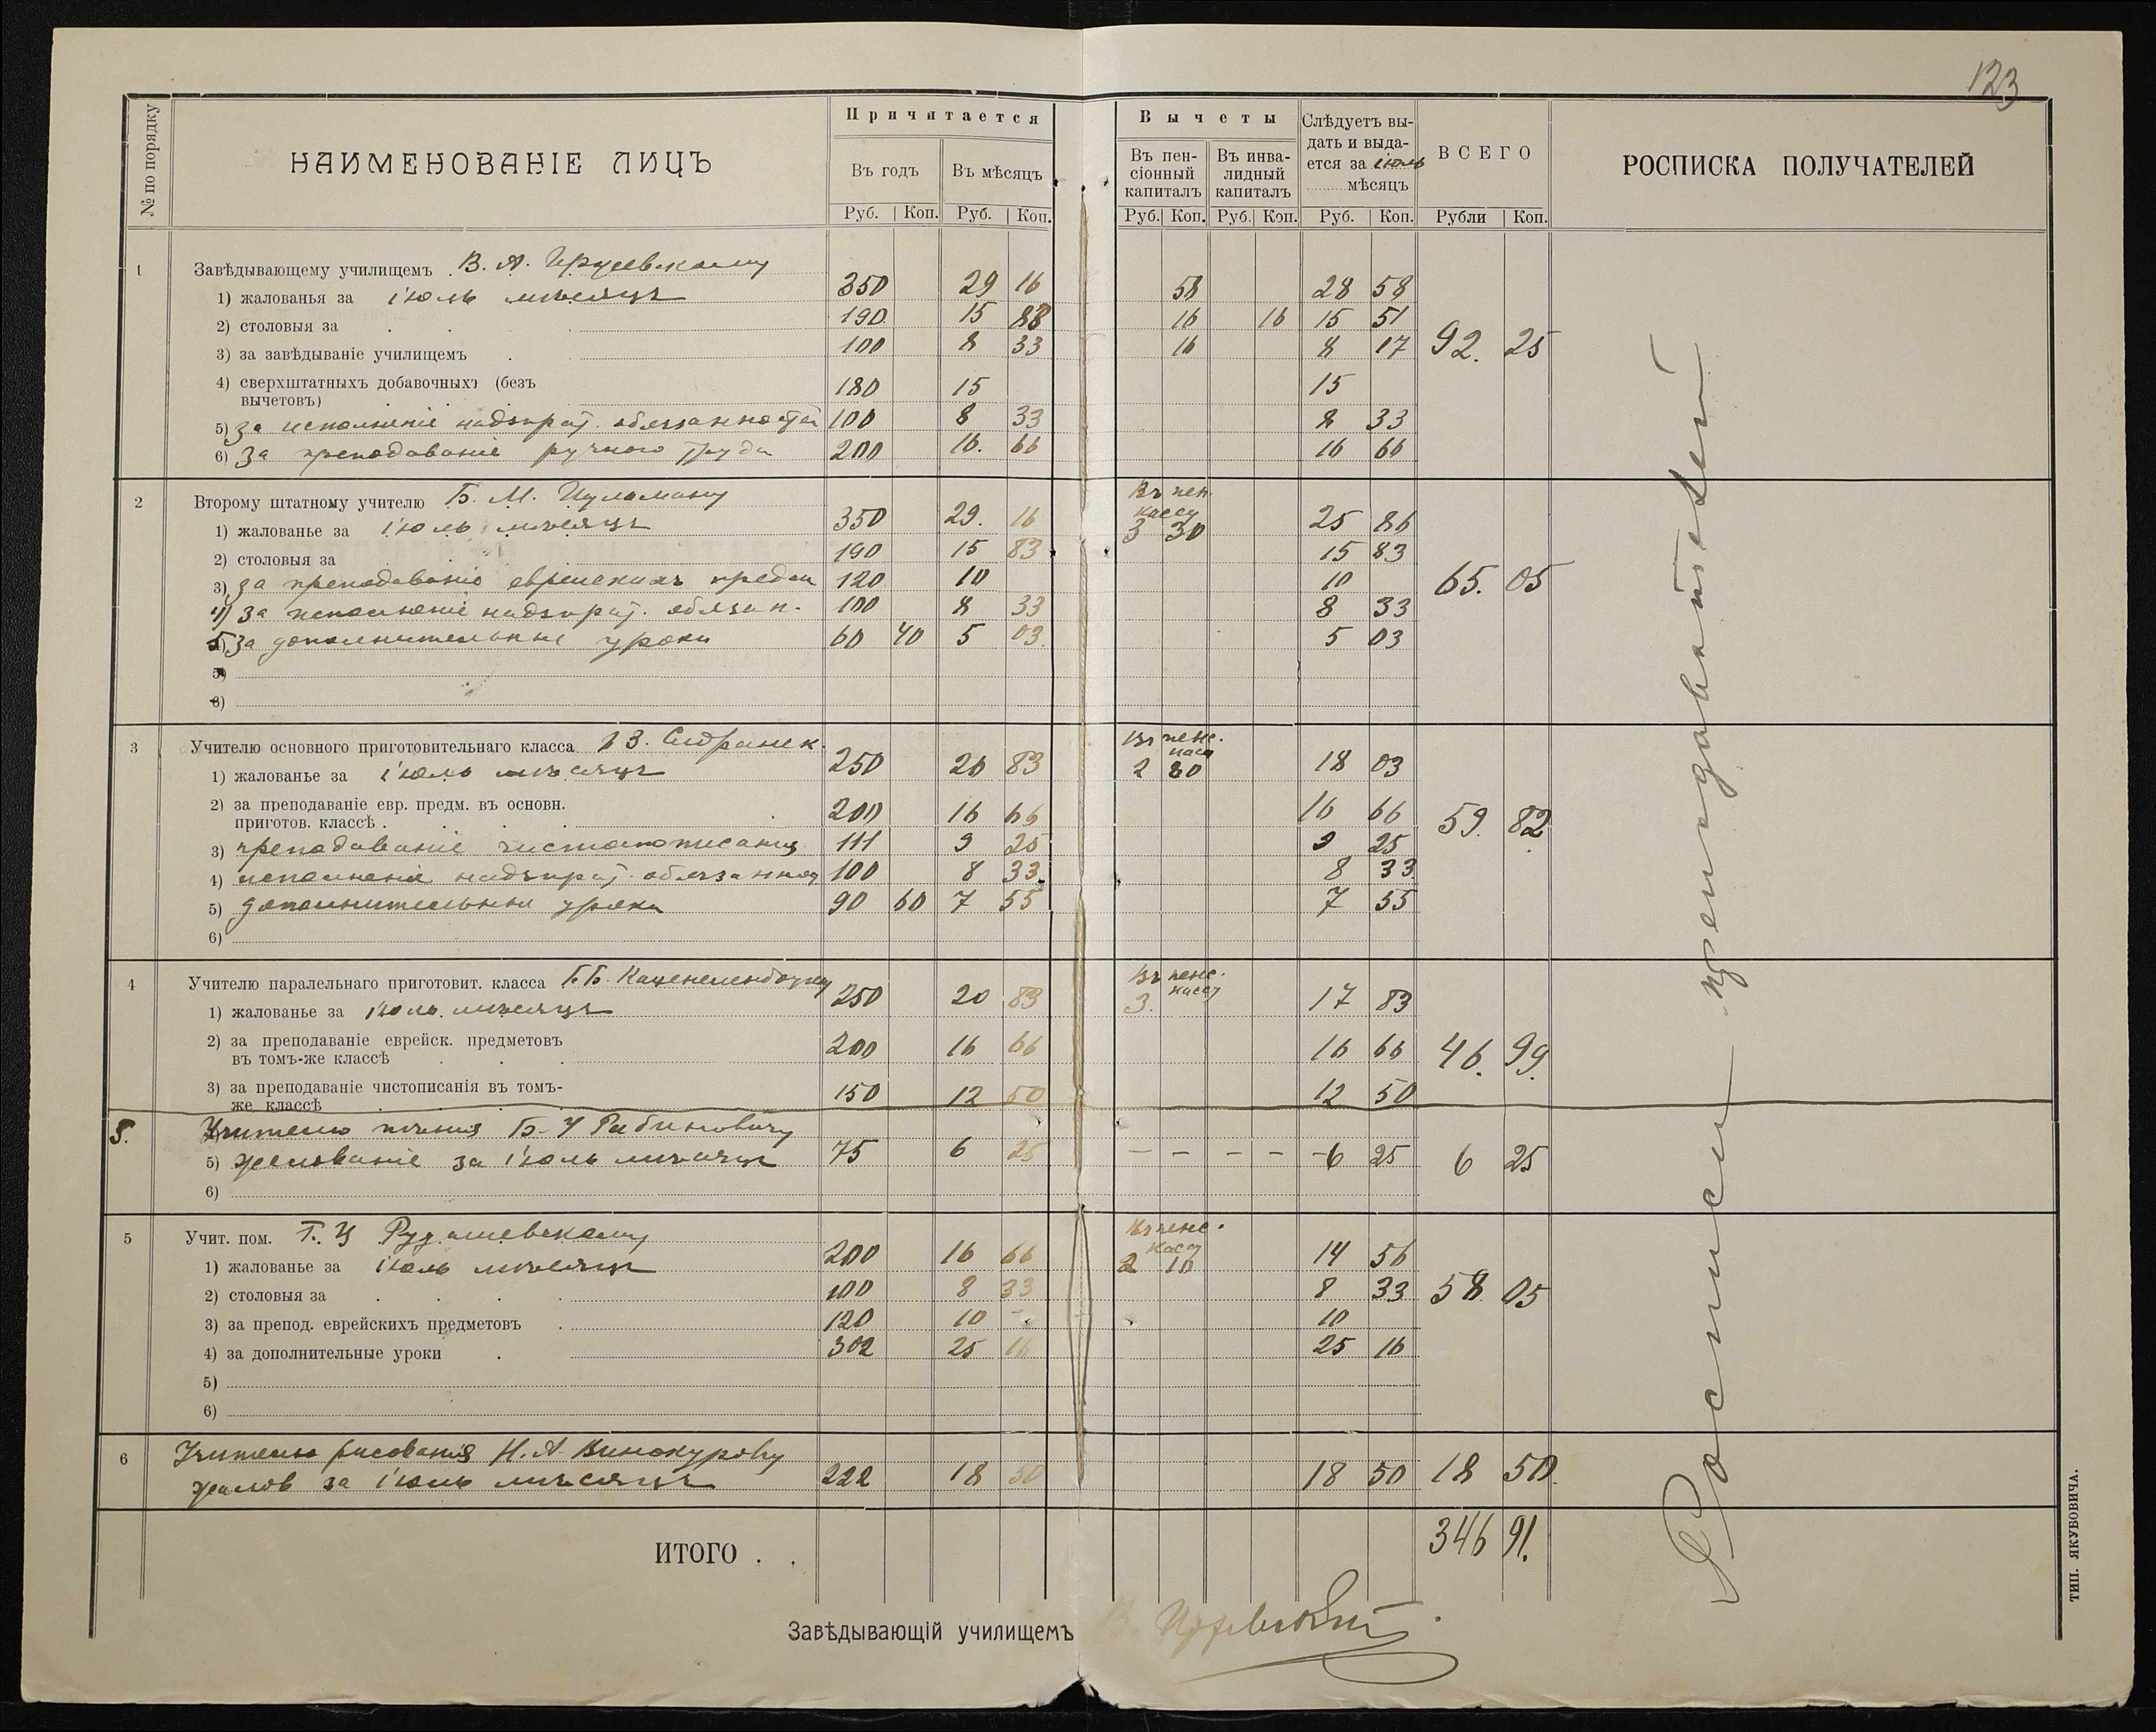 123
№ по порядку
НАИМЕНОВАНІЕ ЛИЦЪ
Причитается
Въ годъ
Въ мѣсяцъ
Вычеты
Въ пен-
сіонный
капиталъ
Въ инва-
лидный
капиталъ
Слѣдуетъ вы-
дать и выда-
ется за іюль
мѣсяцъ
ВСЕГО
РОСПИСКА ПОЛУЧАТЕЛЕЙ
Руб. Коп. Руб. Коп. Руб. Коп. Руб. Коп. Руб. Коп. Рубли Коп.
1 Завѣдывающему училищемъ В. А.
1) жалованья за іюль мѣсяцъ 350 29 16 58 28 58
2) столовыя за 190 15 83 16 16 15 51
3) за завѣдываніе училищемъ 100 8 33 16 8 17 92. 25
4) сверхштатныхъ добавочныхъ (безъ
вычетовъ) 180 15 15
5) за исполненіе надзират. обязанностей 100 8 33 8 33
6) за преподаваніе ручного труда 200 16. 66 16 66
2 Второму штатному учителю Б. М. Шульману Въ пен.
кассу
1) жалованье за іюль мѣсяцъ 350 29. 16 3 30 25 86
2) столовыя за 190 15 83 15 83
3) за преподаваніе еврейскихъ предм 120 10 10 65. 05
4) за исполненіе надзират. обязан. 100 8 33 8 33
5) за дополнительные уроки 60 40 5 03 5 03
5)
6)
3 Учителю основного приготовительнаго класса Въ пенс.
касу
1) жалованье за іюль мѣсяцъ 250 20 83 2 80 18 03
2) за преподаваніе евр. предм. въ основн.
приготов. классѣ 200 16 66 16 66 59. 82
3) преподаваніе чистописанія 111 9 25 9 25
4) исполненіе надзират. обязанност 100 8 33 8 33
5) дополнительные уроки 90 60 7 55 7 55
6)
4 Учителю паралельнаго приготовит. класса Б. Б. Каценеленбогену Въ пенс.
кассу
1) жалованье за іюль мѣсяцъ 250 20 83 3. 17 83
2) за преподаваніе еврейск. предметовъ
въ томъ-же классѣ 200 16 66 16 66 46. 99.
3) за преподаваніе чистописанія въ томъ-
же классѣ 150 12 50 12 50
5. Учителю пѣнія Б. Рабиновичу
5) жалованіе за іюль мѣсяцъ 75 6 25 - - - - 6 25 6 25
6)
5 Учит. пом. Г. Ц Рудашевскому Въ пенс.
касу
1) жалованье за іюль мѣсяцъ 200 16 66 2 10 14 56
2) столовыя за 100 8 33 8 33 58 05
3) за препод. еврейскихъ предметовъ 120 10 - 10
4) за дополнительные уроки 302 25 16 25 16
5)
6)
6 Учителю рисованія Н. А. Винокурову
жалов за іюль мѣсяцъ 222 18 50 18 50 18 50.
ИТОГО . . 346 91.
Завѣдывающій училищемъ В.
Росписи преподавателей
ТИП. ЯКУБОВИЧА.